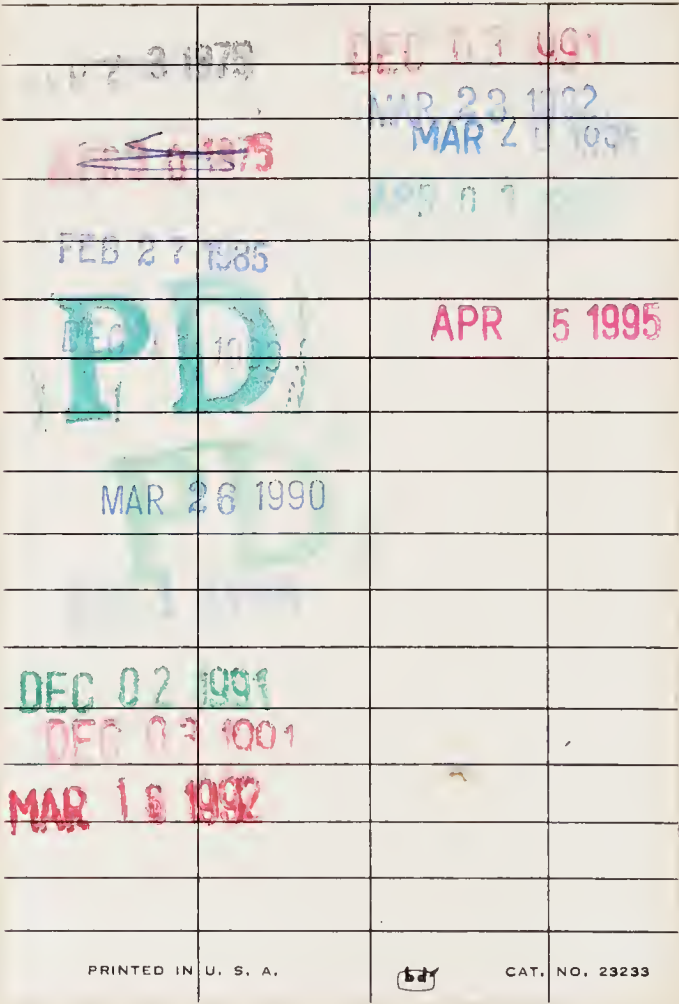 3 1975
1975
FEB 27 1985
PD
DEC
MAR 26 1990
PD
DEC 02 1991
DEC 03 1991
MAR 16 1992
DEC 03 1991
MAR 23 1992
MAR 2 1995
APR 0
APR 5 1995
PRINTED IN U. S. A.
bd
CAT. NO. 23233